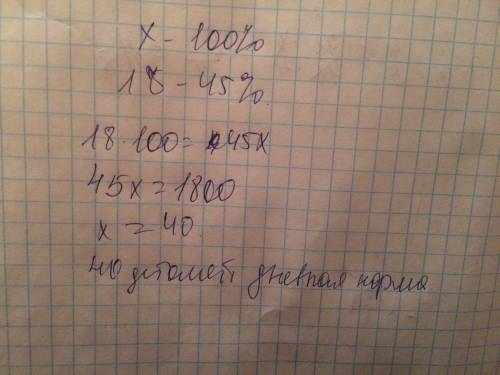 x - 100%
18 - 45%.
18·100 = 45x
45x = 1800
x = 40.
40 деталей дневная норма